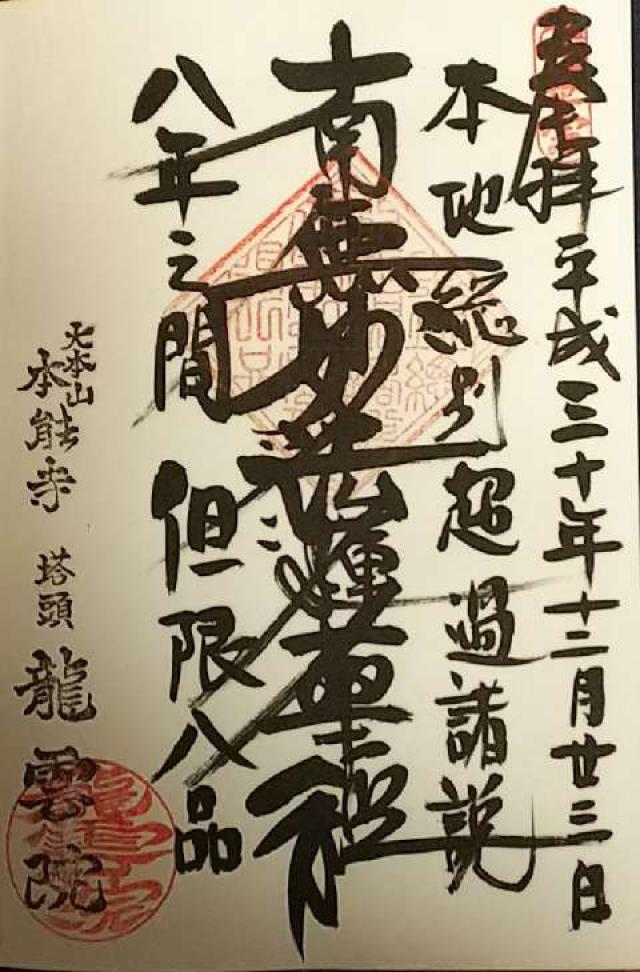 奉拝 平成三十年十二月廿三日
本地総別超過諸説
南無妙法蓮華経
八年之間 但限八品
大本山
本能寺 塔頭 龍雲院